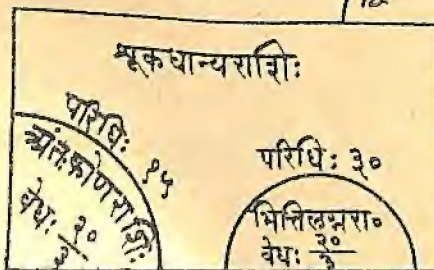 शूकधान्यराशिः
परिधिः १५
अंतःकोणराशिः
वेधः २०/३
परिधिः ३०
भित्तिलग्नरा॰
वेधः २०/३